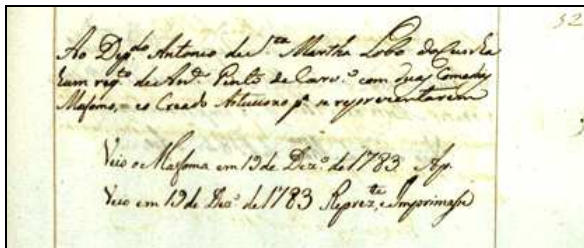 32
Ao Dep.do Antonio de S.ta Martha Lobo da Cunha
hum req.to de An.to Pinto de Carv.o com duas Comedias
Mafoma, e o Creado Astucioso p.a se reprezentarem
Veio o Mafoma em 19 de Dez.o de 1783. Ap.
Veio em 19 de Dez.o de 1783 Reprez.te, e Imprimase